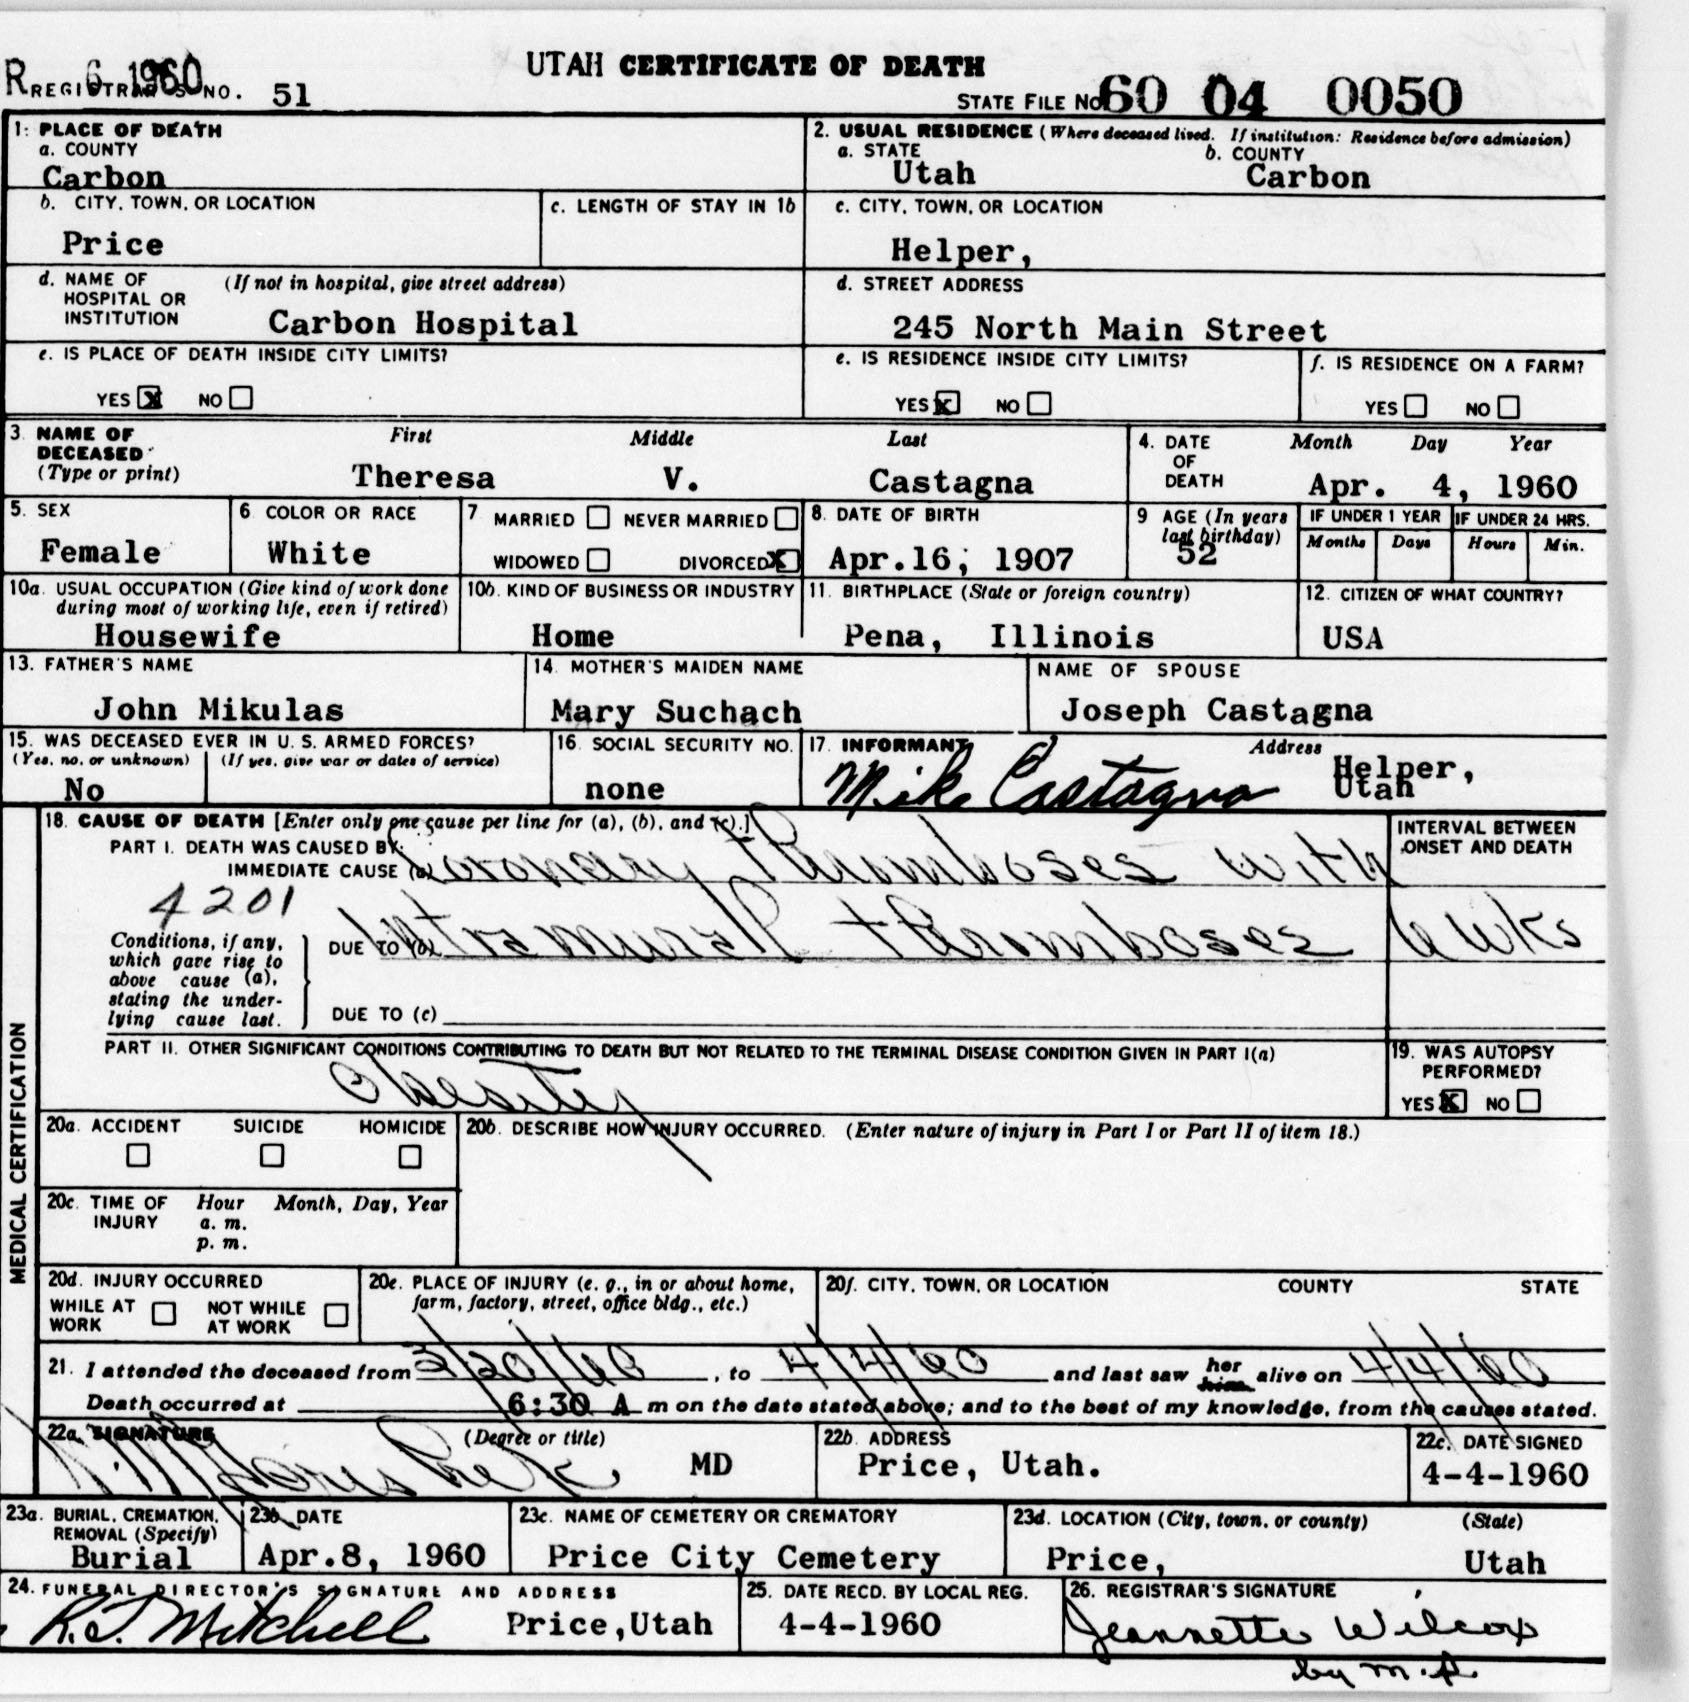 UTAH CERTIFICATE OF DEATH
R 6 1960
REGISTRAR'S NO. 51
STATE FILE NO. 60 04 0050
1. PLACE OF DEATH
a. COUNTY
Carbon
2. USUAL RESIDENCE (Where deceased lived. If institution: Residence before admission)
a. STATE b. COUNTY
Utah Carbon
b. CITY, TOWN, OR LOCATION
Price
c. LENGTH OF STAY IN 1b
c. CITY, TOWN, OR LOCATION
Helper,
d. NAME OF HOSPITAL OR INSTITUTION (If not in hospital, give street address)
Carbon Hospital
d. STREET ADDRESS
245 North Main Street
e. IS PLACE OF DEATH INSIDE CITY LIMITS?
YES X NO
e. IS RESIDENCE INSIDE CITY LIMITS?
YES X NO
f. IS RESIDENCE ON A FARM?
YES NO
3. NAME OF DECEASED (Type or print)
First Middle Last
Theresa V. Castagna
4. DATE OF DEATH Month Day Year
Apr. 4, 1960
5. SEX
Female
6. COLOR OR RACE
White
7 MARRIED NEVER MARRIED
WIDOWED DIVORCED X
8. DATE OF BIRTH
Apr.16, 1907
9 AGE (In years last birthday)
52
IF UNDER 1 YEAR
Months Days
IF UNDER 24 HRS.
Hours Min.
10a. USUAL OCCUPATION (Give kind of work done during most of working life, even if retired)
Housewife
10b. KIND OF BUSINESS OR INDUSTRY
Home
11. BIRTHPLACE (State or foreign country)
Pena, Illinois
12. CITIZEN OF WHAT COUNTRY?
USA
13. FATHER'S NAME
John Mikulas
14. MOTHER'S MAIDEN NAME
Mary Suchach
NAME OF SPOUSE
Joseph Castagna
15. WAS DECEASED EVER IN U. S. ARMED FORCES?
(Yes, no, or unknown) (If yes, give war or dates of service)
No
16. SOCIAL SECURITY NO.
none
17. INFORMANT Address
Mike Castagna Helper, Utah
MEDICAL CERTIFICATION
18. CAUSE OF DEATH [Enter only one cause per line for (a), (b), and (c).]
PART I. DEATH WAS CAUSED BY:
IMMEDIATE CAUSE (a) Coronary thromboses with
INTERVAL BETWEEN ONSET AND DEATH
4201
Conditions, if any, which gave rise to above cause (a), stating the underlying cause last.
DUE TO (b) Intramural thromboses 6 wks
DUE TO (c)
PART II. OTHER SIGNIFICANT CONDITIONS CONTRIBUTING TO DEATH BUT NOT RELATED TO THE TERMINAL DISEASE CONDITION GIVEN IN PART I(a)
Obesity
19. WAS AUTOPSY PERFORMED?
YES X NO
20a. ACCIDENT SUICIDE HOMICIDE
20b. DESCRIBE HOW INJURY OCCURRED. (Enter nature of injury in Part I or Part II of item 18.)
20c. TIME OF INJURY Hour Month, Day, Year
a. m.
p. m.
20d. INJURY OCCURRED
WHILE AT WORK NOT WHILE AT WORK
20e. PLACE OF INJURY (e. g., in or about home, farm, factory, street, office bldg., etc.)
20f. CITY, TOWN, OR LOCATION COUNTY STATE
21. I attended the deceased from 3/20/60, to 4/4/60 and last saw her him alive on 4/4/60
Death occurred at 6:30 A m on the date stated above; and to the best of my knowledge, from the causes stated.
22a. SIGNATURE (Degree or title)
MD
22b. ADDRESS
Price, Utah.
22c. DATE SIGNED
4-4-1960
23a. BURIAL, CREMATION, REMOVAL (Specify)
Burial
23b. DATE
Apr.8, 1960
23c. NAME OF CEMETERY OR CREMATORY
Price City Cemetery
23d. LOCATION (City, town, or county) (State)
Price, Utah
24. FUNERAL DIRECTOR'S SIGNATURE AND ADDRESS
R.J. Mitchell Price,Utah
25. DATE RECD. BY LOCAL REG.
4-4-1960
26. REGISTRAR'S SIGNATURE
Jeannette Wilcox
by m.p.